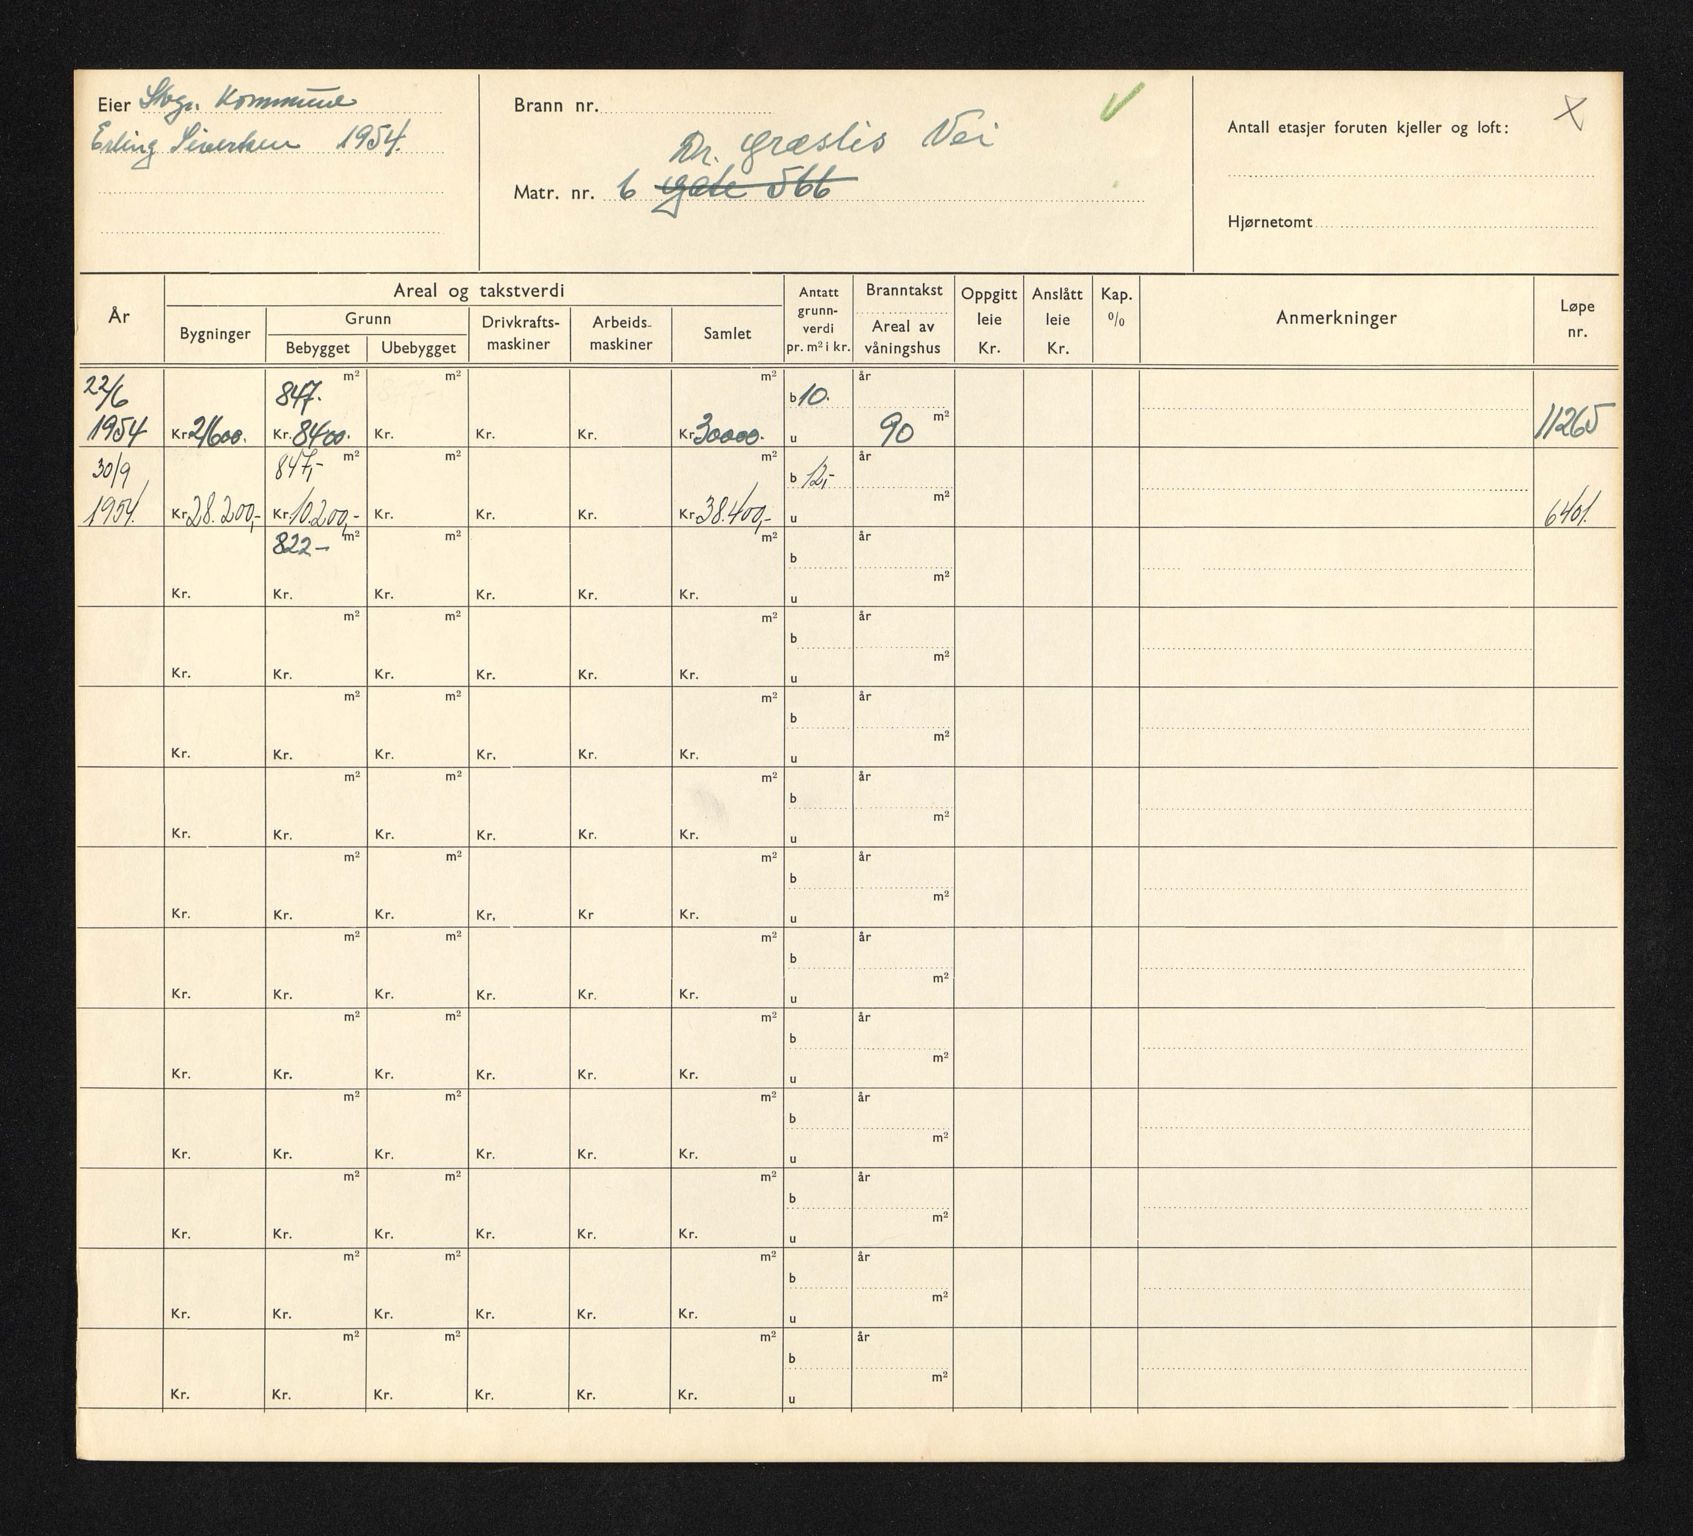 Eier Stvgr. Kommune
Erling Siversten 1954.
Brann nr.
Dr. Græslis Vei
Matr. nr. 6 Gate 566
Antall etasjer foruten kjeller og loft: X
Hjørnetomt
År
Areal og takstverdi
Bygninger
Grunn
Bebygget Ubebygget
Drivkrafts-
maskiner
Arbeids-
maskiner
Samlet
Antatt
grunn-
verdi
pr. m² i kr.
Branntakst
Areal av
våningshus
Oppgitt
leie
Kr.
Anslått
leie
Kr.
Kap.
%
Anmerkninger
Løpe
nr.
22/6 847. m² m² m² b 10. år
1954 Kr. 21600. Kr. 8400. Kr. Kr. Kr. Kr. 30000. u 90 m² 11265
30/9 847,- m² m² m² b 12,- år
1954. Kr. 28.200,- Kr. 10.200,- Kr. Kr. Kr. Kr. 38.400,- u m² 6401.
822- m² m² m² b år
Kr. Kr. Kr. Kr. Kr. Kr. u m²
m² m² m² b år
Kr. Kr. Kr. Kr. Kr. Kr. u m²
m² m² m² b år
Kr. Kr. Kr. Kr. Kr. Kr. u m²
m² m² m² b år
Kr. Kr. Kr. Kr. Kr. Kr. u m²
m² m² m² b år
Kr. Kr. Kr. Kr, Kr Kr. u m²
m² m² m² b år
Kr. Kr. Kr. Kr. Kr. Kr. u m²
m² m² m² b år
Kr. Kr. Kr. Kr. Kr. Kr. u m²
m² m² m² b år
Kr. Kr. Kr. Kr. Kr. Kr. u m²
m² m² m² b år
Kr. Kr. Kr. Kr. Kr. Kr. u m²
m² m² m² b år
Kr. Kr. Kr. Kr. Kr. Kr. u m²
m² m² m² b år
Kr. Kr. Kr. Kr. Kr. Kr. u m²